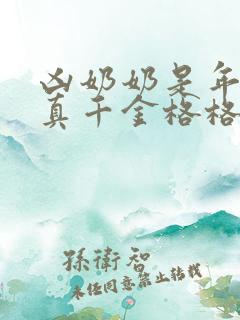 凶奶奶是年
真千金格格
孫衛智
未经同意禁止转载